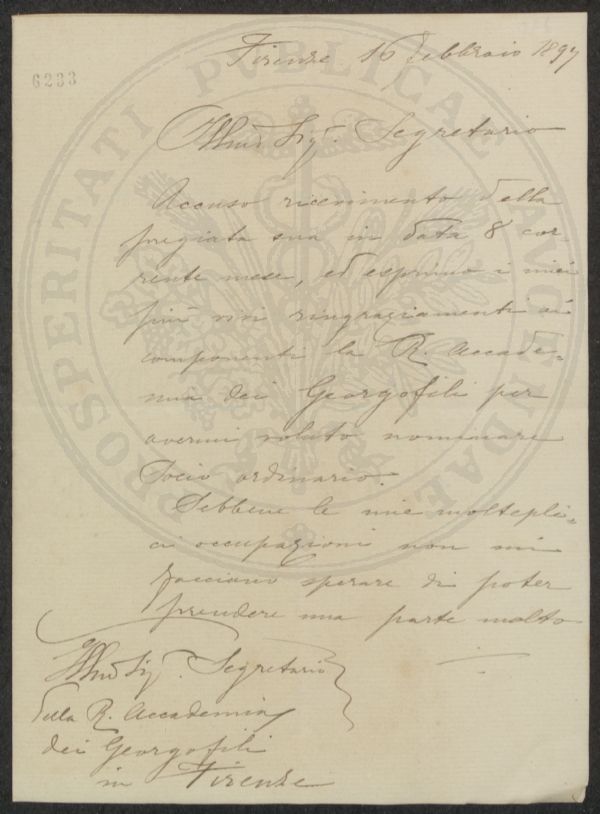 Firenze 16 febbraio 1897
6233
PROSPERITATI PUBLICAE AUGENDAE
Illmo Sigr. Segretario
Accuso ricevimento della
pregiata sua in data 8 cor-
rente mese, ed esprimo i miei
più vivi ringraziamenti ai
componenti la R. Accade-
mia dei Georgofili per
avermi voluto nominare
Socio ordinario.
Sebbene le mie moltepli-
ci occupazioni non mi
facciano sperare di poter
prendere una parte molto
Illmo Sigr. Segretario
della R. Accademia
dei Georgofili
in Firenze